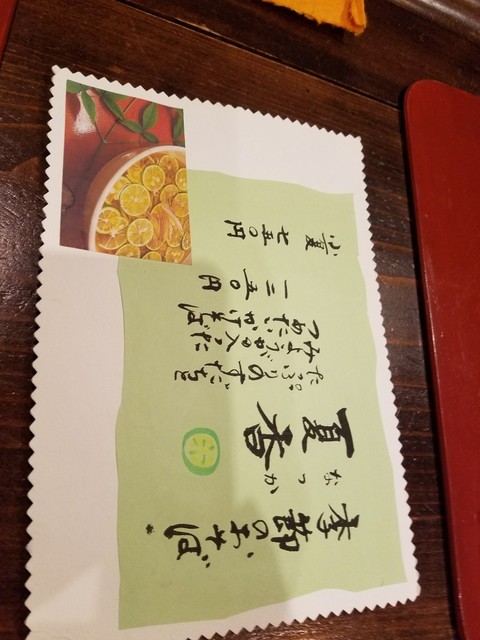 季節のおそば
夏香
なつか
たっぷりのすだちと
みょうがの入った
つめたいかけそば
一二五〇円
小夏 七五〇円